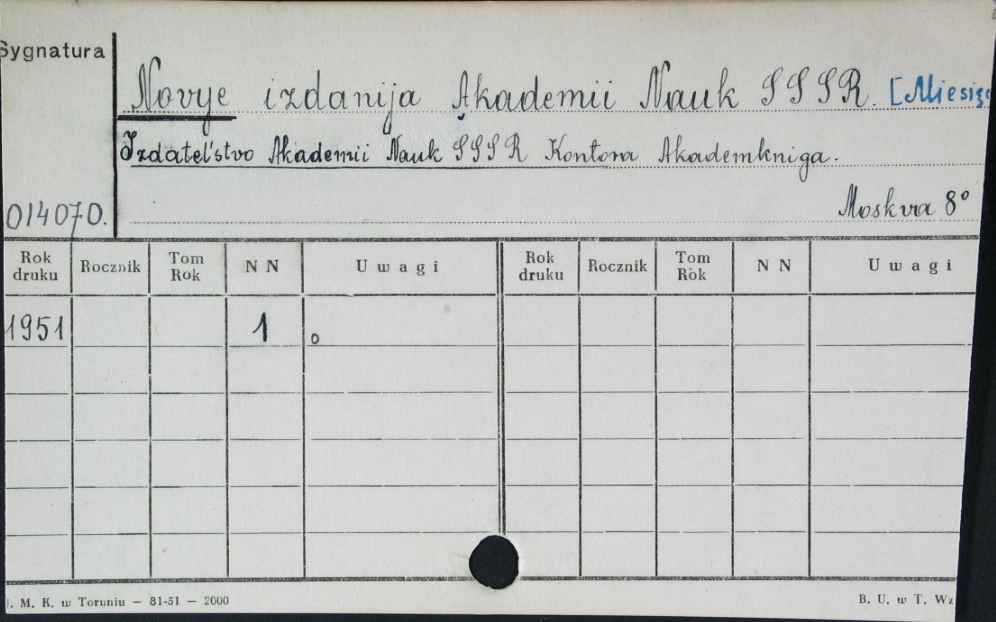 Sygnatura
Novyje izdanija Akademii Nauk SSSR. [Miesięc
Izdatel'stvo Akademii Nauk SSSR Kontora Akademkniga.
014070.
Moskva 8°
Rok druku Rocznik Tom Rok N N Uwagi Rok druku Rocznik Tom Rok N N Uwagi
1951 1 o
. M. K. w Toruniu — 81-51 — 2000 B. U. w T. Wz